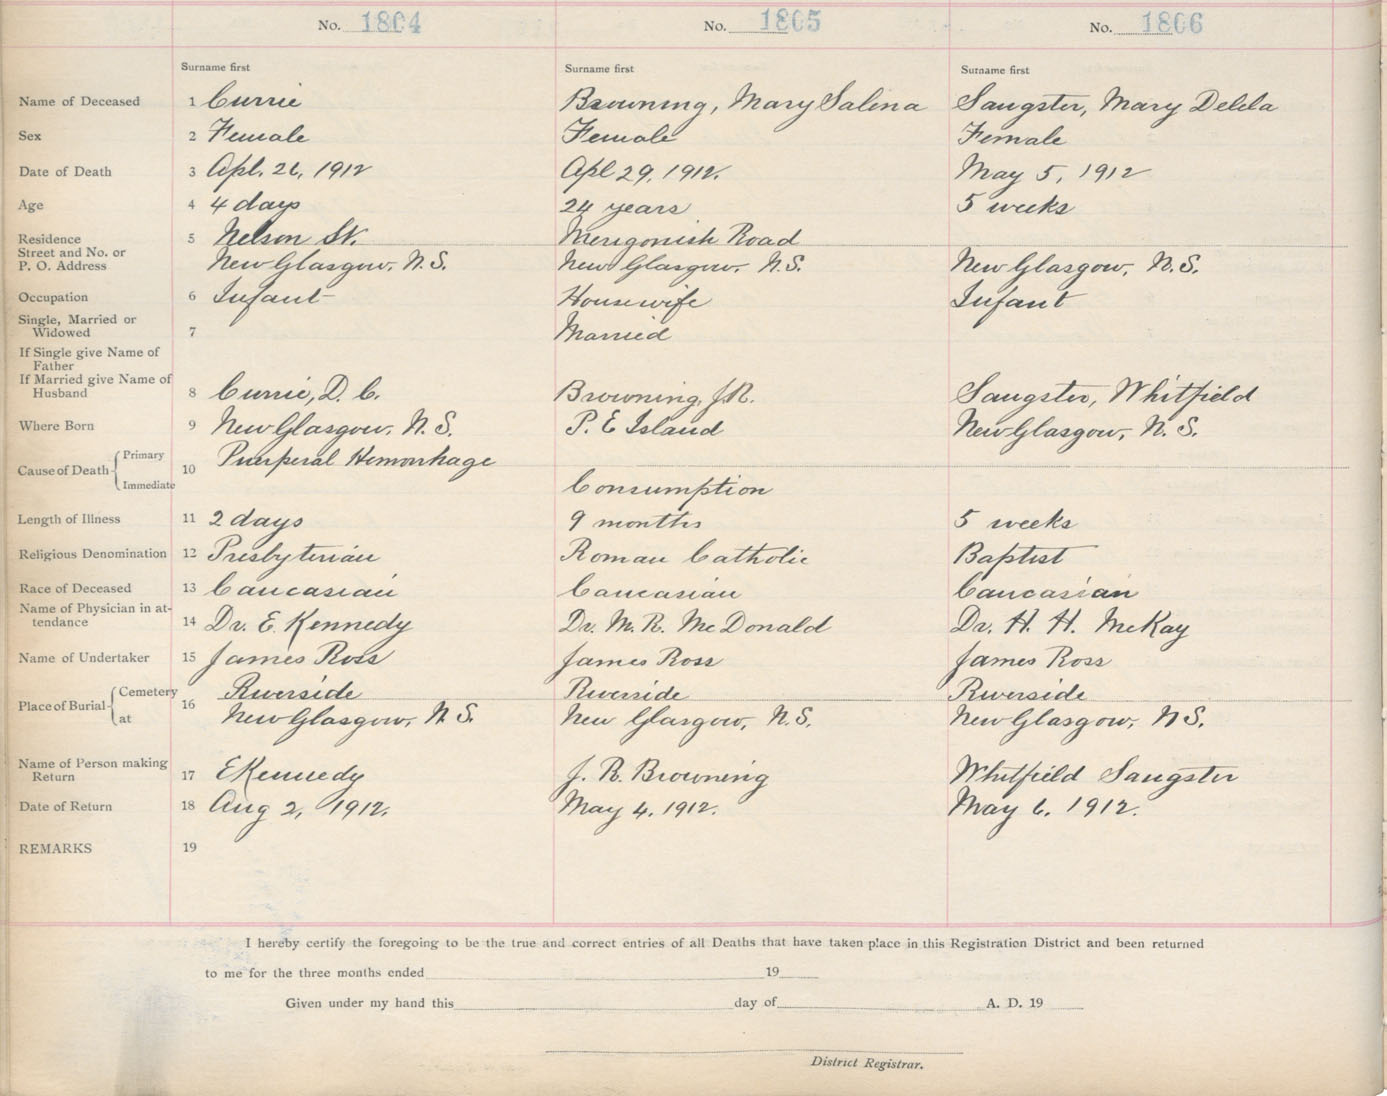 No. 1804 No. 1805 No. 1806
Surname first Surname first Surname first
Name of Deceased 1 Currie Browning, Mary Salena Sangster, Mary Delila
Sex 2 Female Female Female
Date of Death 3 Apl. 26, 1912 Apl 29, 1912. May 5, 1912
Age 4 4 days 24 years 5 weeks
Residence 5 Nelson St. Merigonish Road
Street and No. or
P. O. Address New Glasgow, N.S. New Glasgow, N.S. New Glasgow, N.S.
Occupation 6 Infant Housewife Infant
Single, Married or
Widowed 7 Married
If Single give Name of
Father
If Married give Name of
Husband 8 Currie, D. C. Browning, J.R. Sangster, Whitfield
Where Born 9 New Glasgow, N.S. P. E Island New Glasgow, N.S.
Cause of Death Primary 10 Puerperal Hemorrhage
Immediate Consumption
Length of Illness 11 2 days 9 months 5 weeks
Religious Denomination 12 Presbyterian Roman Catholic Baptist
Race of Deceased 13 Caucasian Caucasian Caucasian
Name of Physician in at-
tendance 14 Dr. E. Kennedy Dr. M. R. McDonald Dr. H. H. McKay
Name of Undertaker 15 James Ross James Ross James Ross
Place of Burial Cemetery 16 Riverside Riverside Riverside
at New Glasgow, N.S. New Glasgow, N.S. New Glasgow, N.S.
Name of Person making
Return 17 E Kennedy J. R. Browning Whitfield Sangster
Date of Return 18 Aug 2, 1912. May 4, 1912. May 6, 1912.
REMARKS 19
I hereby certify the foregoing to be the true and correct entries of all Deaths that have taken place in this Registration District and been returned
to me for the three months ended 19
Given under my hand this day of A. D. 19
District Registrar.